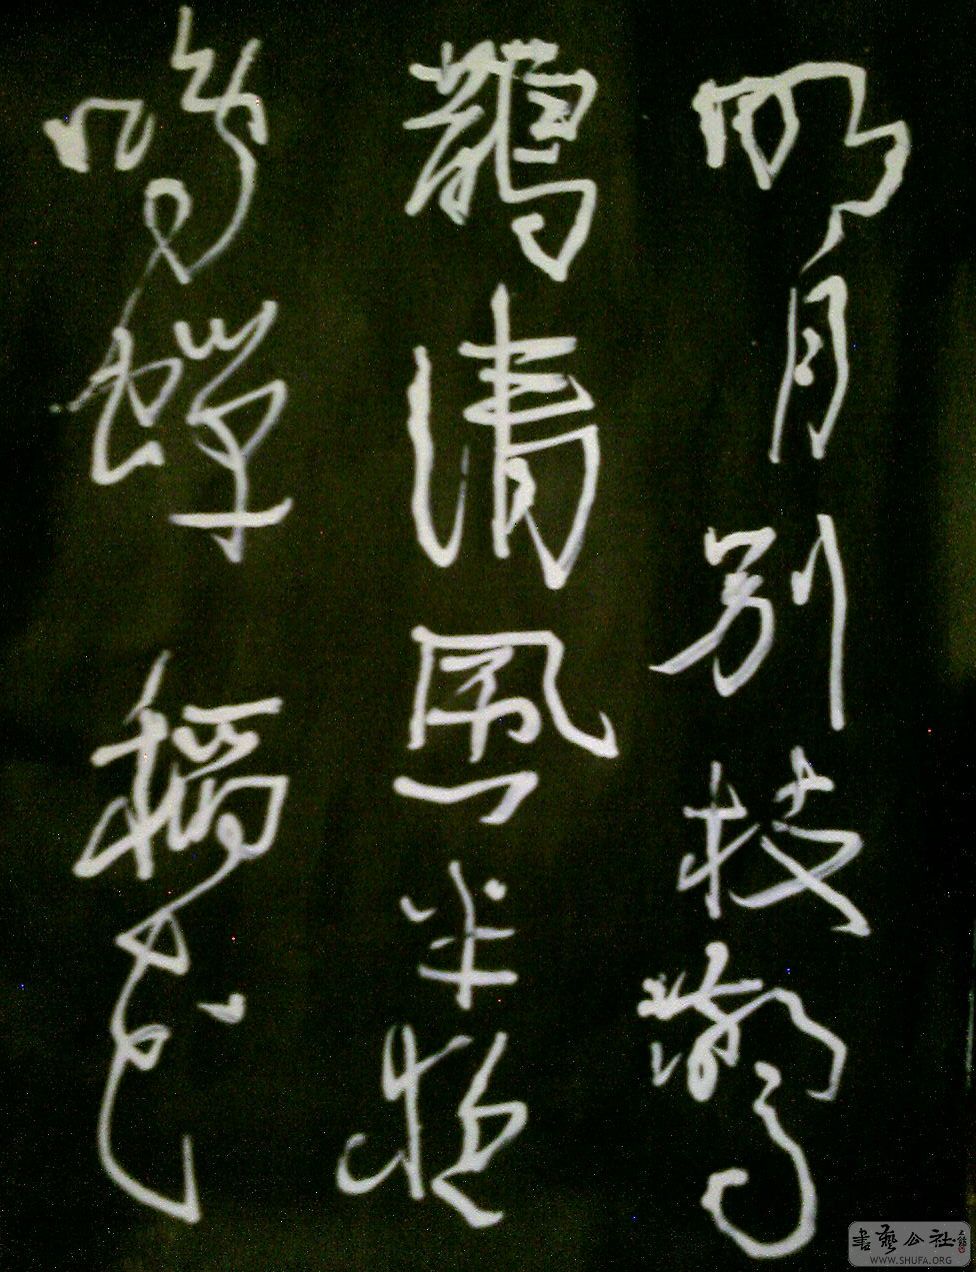 明月别枝驚
鵲清風半夜
鳴蟬稻花
書藝公社
WWW.SHUFA.ORG